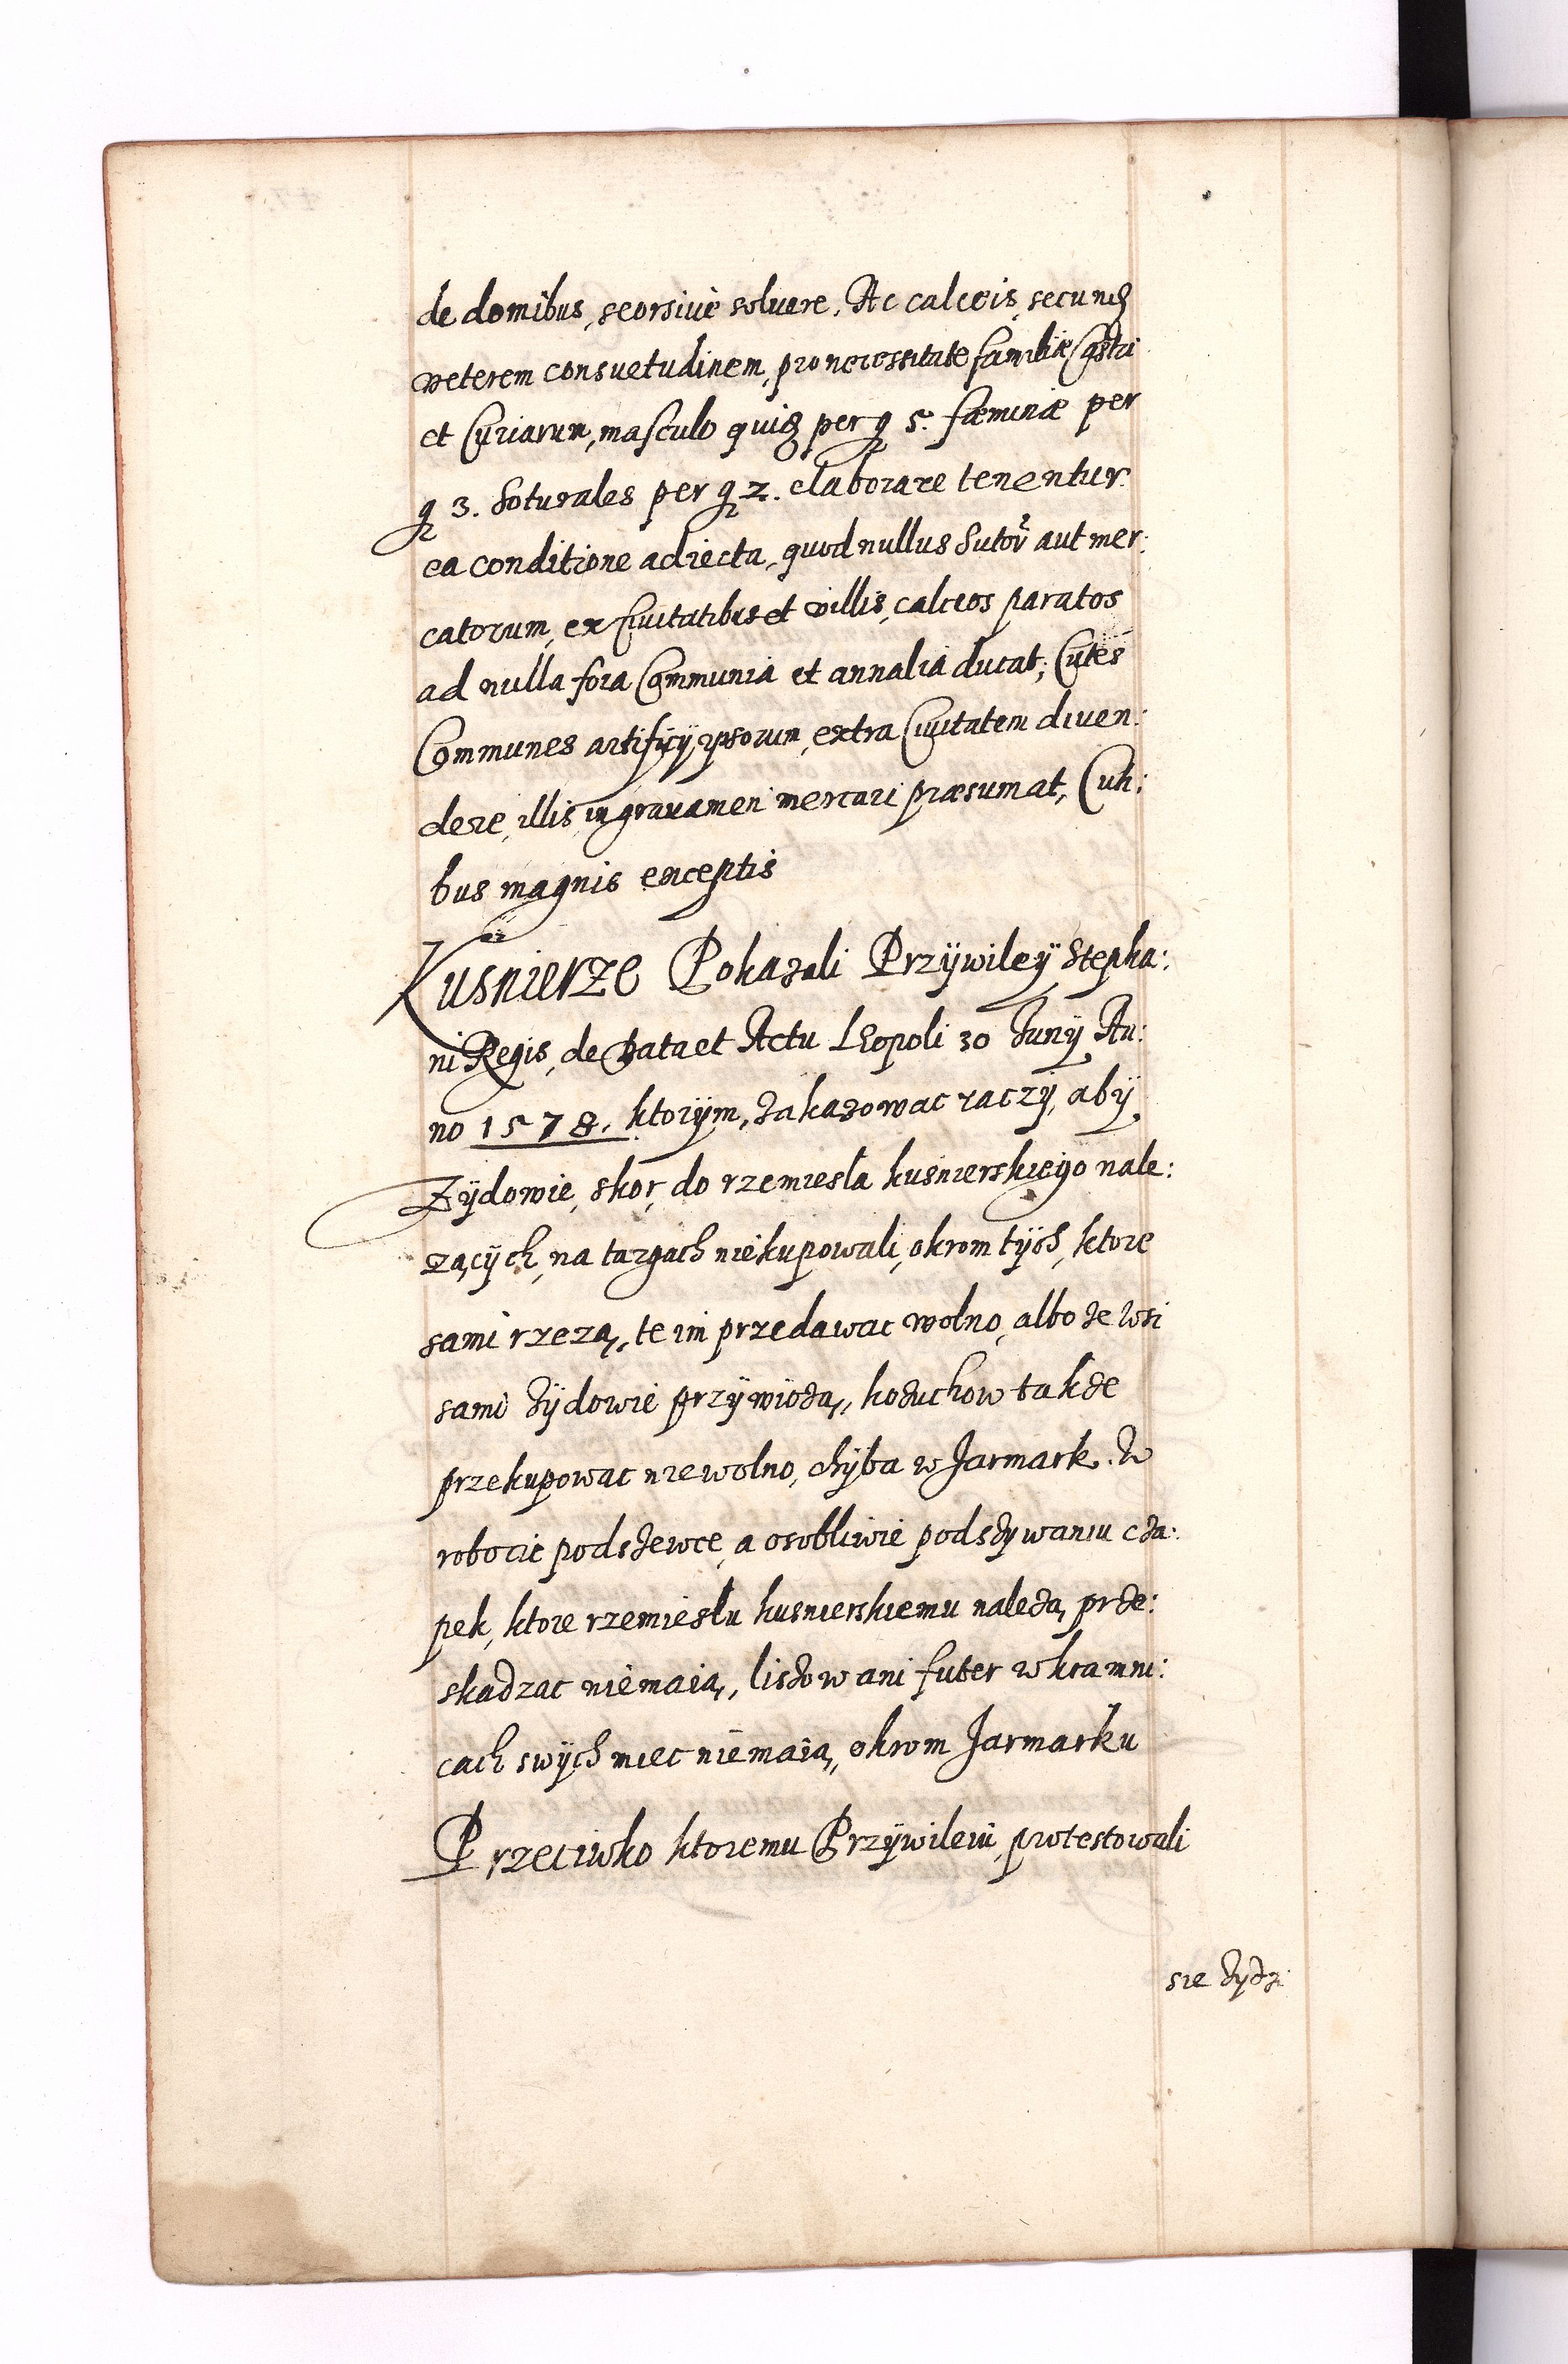 de domibus, seorsivè soluere. Ac calceis, secundũ
veterem consvetudinem, pro necessitate familiæ Castri
et Curiarum, masculo quidẽ per g 5. fæminæ per
g 3. Soturales per g 2. elaborare tenentur.
ea conditione adiecta, quod nullus Sutor aut mer:
catorum, ex Civitatibus et villis, calceos paratos
ad nulla fora Communia et annalia ducat; Cutes
Communes artificÿ ipsorum, extra Civitatem diven:
dere, illis in gravamen mercari præsumat, Cuti:
bus magnis exceptis
Kuśnierze Pokazali Przÿwileÿ Stepha:
ni Regis, de Data et Actu Leopoli 30 Junÿ An:
no 1578. ktorÿm, zakazowac raczÿ, abÿ
Zÿdowie, skor, do rzemiesła kuśnierskiego nale:
zącÿch, na targach niekupowali, okrom tÿch, ktore
sami rzezą, te im przedawac wolno, albo ze wsi
sami zÿdowie przÿwiozą, kozuchow takze
przekupowac niewolno, chÿba w Jarmark. W
robocie podszewce, a osobliwie podszywaniu cza:
pek, ktore rzemiesłu kusnierskiemu nalezą prze:
skadzac niemaią, liszow ani futer w kramni:
cach swÿch miec niemaią, okrom Jarmarku
Przeciwko ktoremu Przÿwilewi, protestowali
sie zydzi